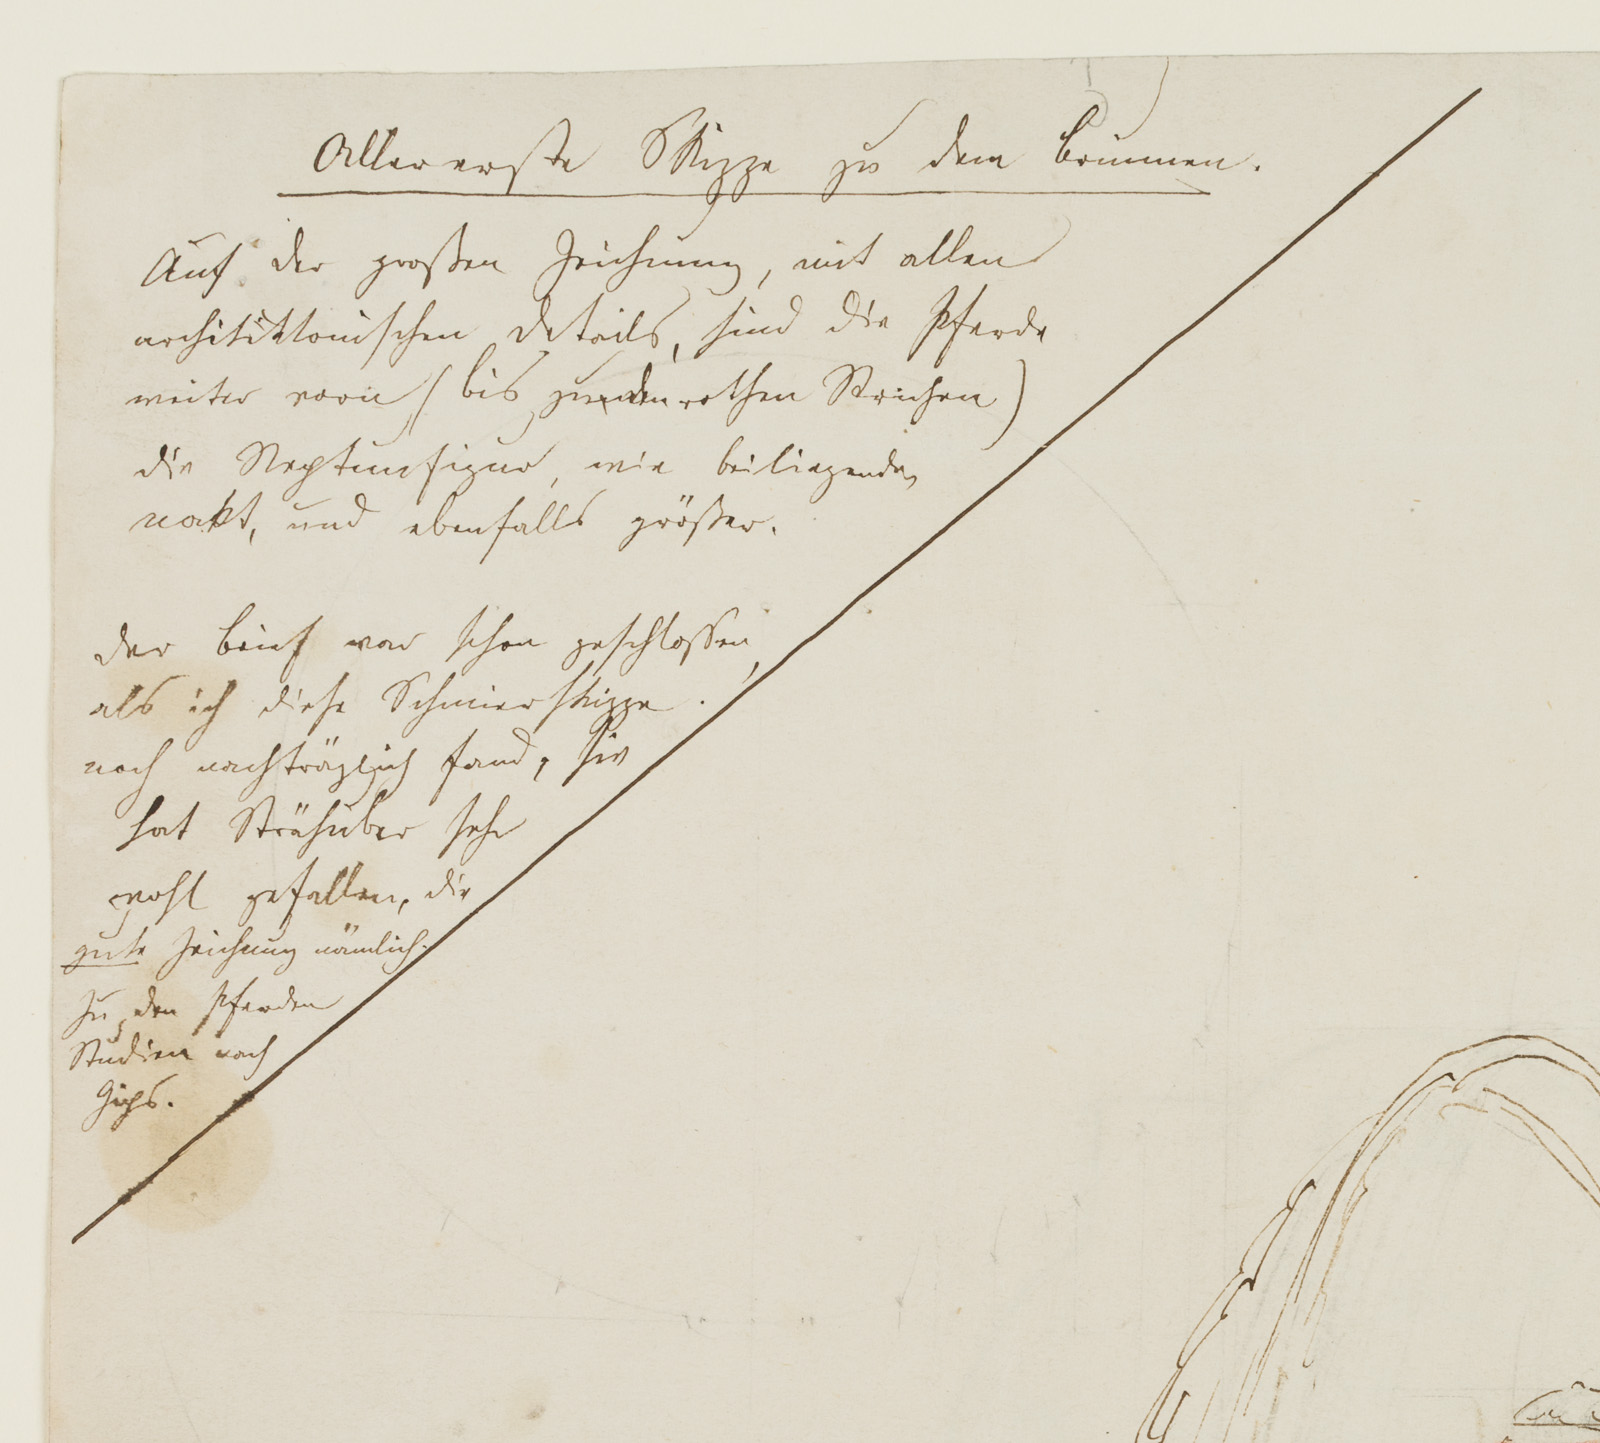 Allererste Skizze zu dem Brunnen.
Auf der großen Zeichnung, mit allen
architektonischen Details, sind die Pferde
weiter vorn (bis zu den rothen Strichen)
die Neptunfigur, wie beiliegende,
nakt, und ebenfalls größer.
Der Brief war schon geschlossen,
als ich diese Schmierskizze
noch nachträglich fand, sie
hat Strähuber sehr
wohl gefallen, die
gute Zeichnung nämlich.
Zu den Pferden
Studien nach
Gips.